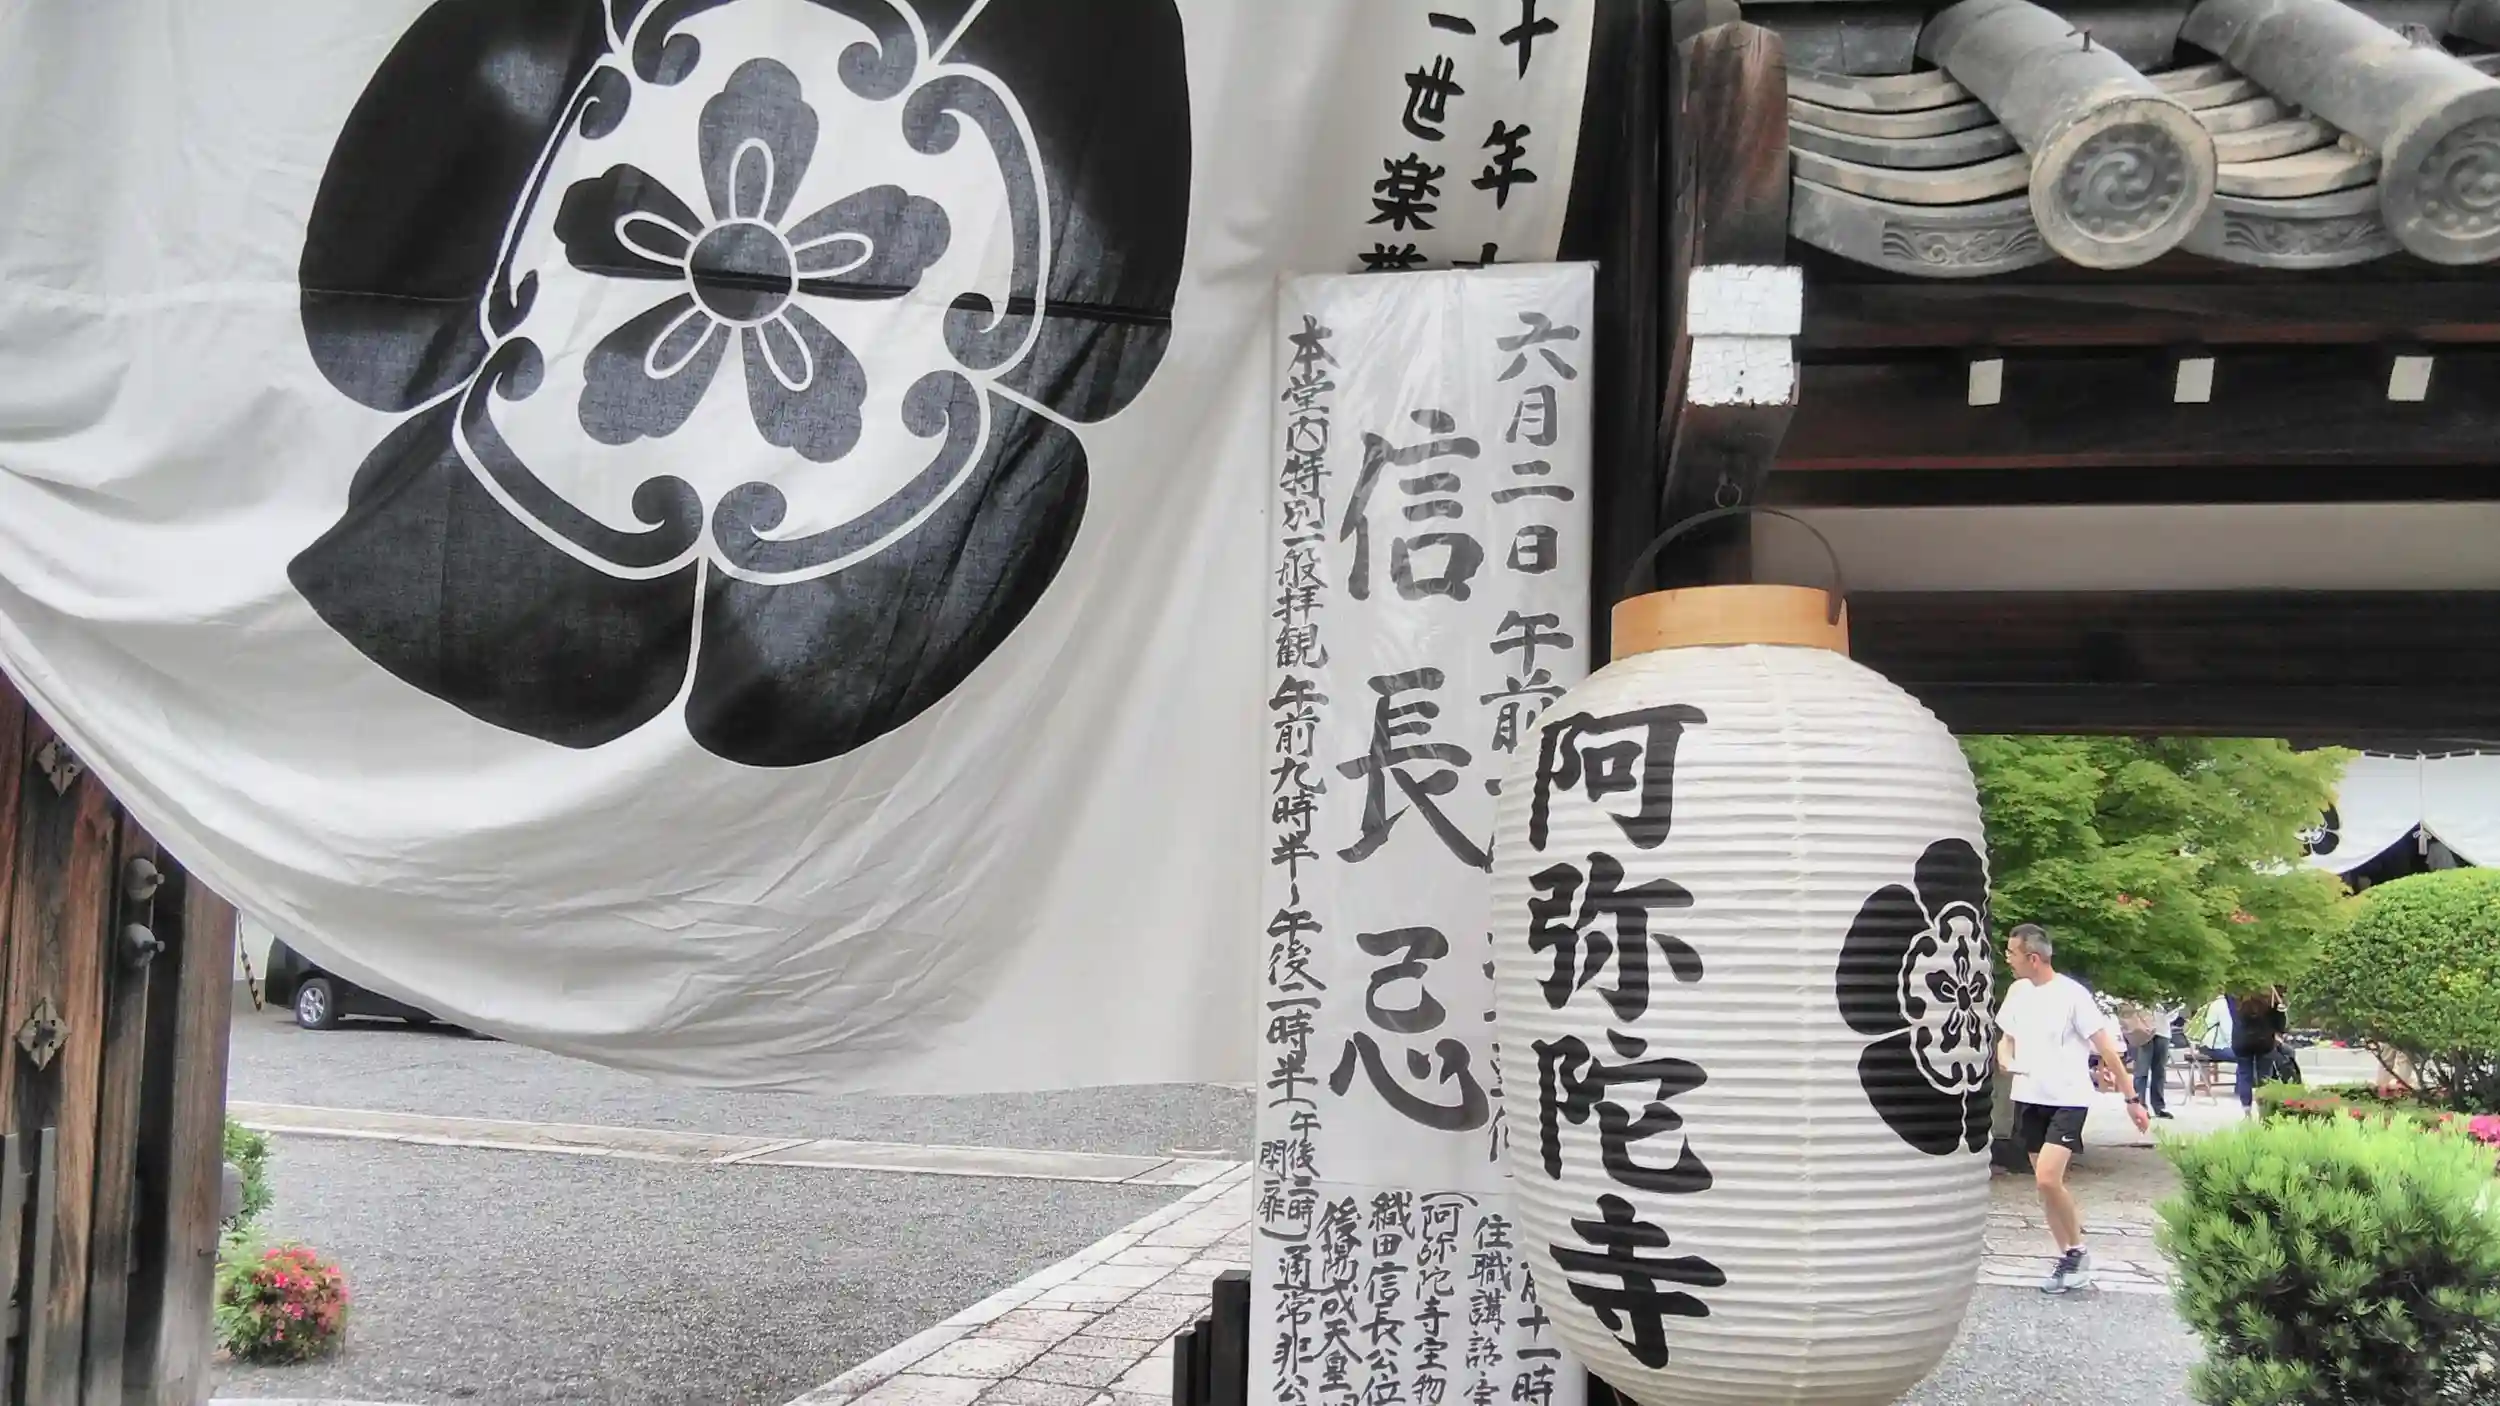 十年十
一世楽
六月二日 午前
信長忌
本堂内特別一般拝観 午前九時半~午後二時半(午後二時閉扉)通常非公
月十一時
住職講話
(阿弥陀寺宝物
織田信長公位
後陽成天皇
阿弥陀寺